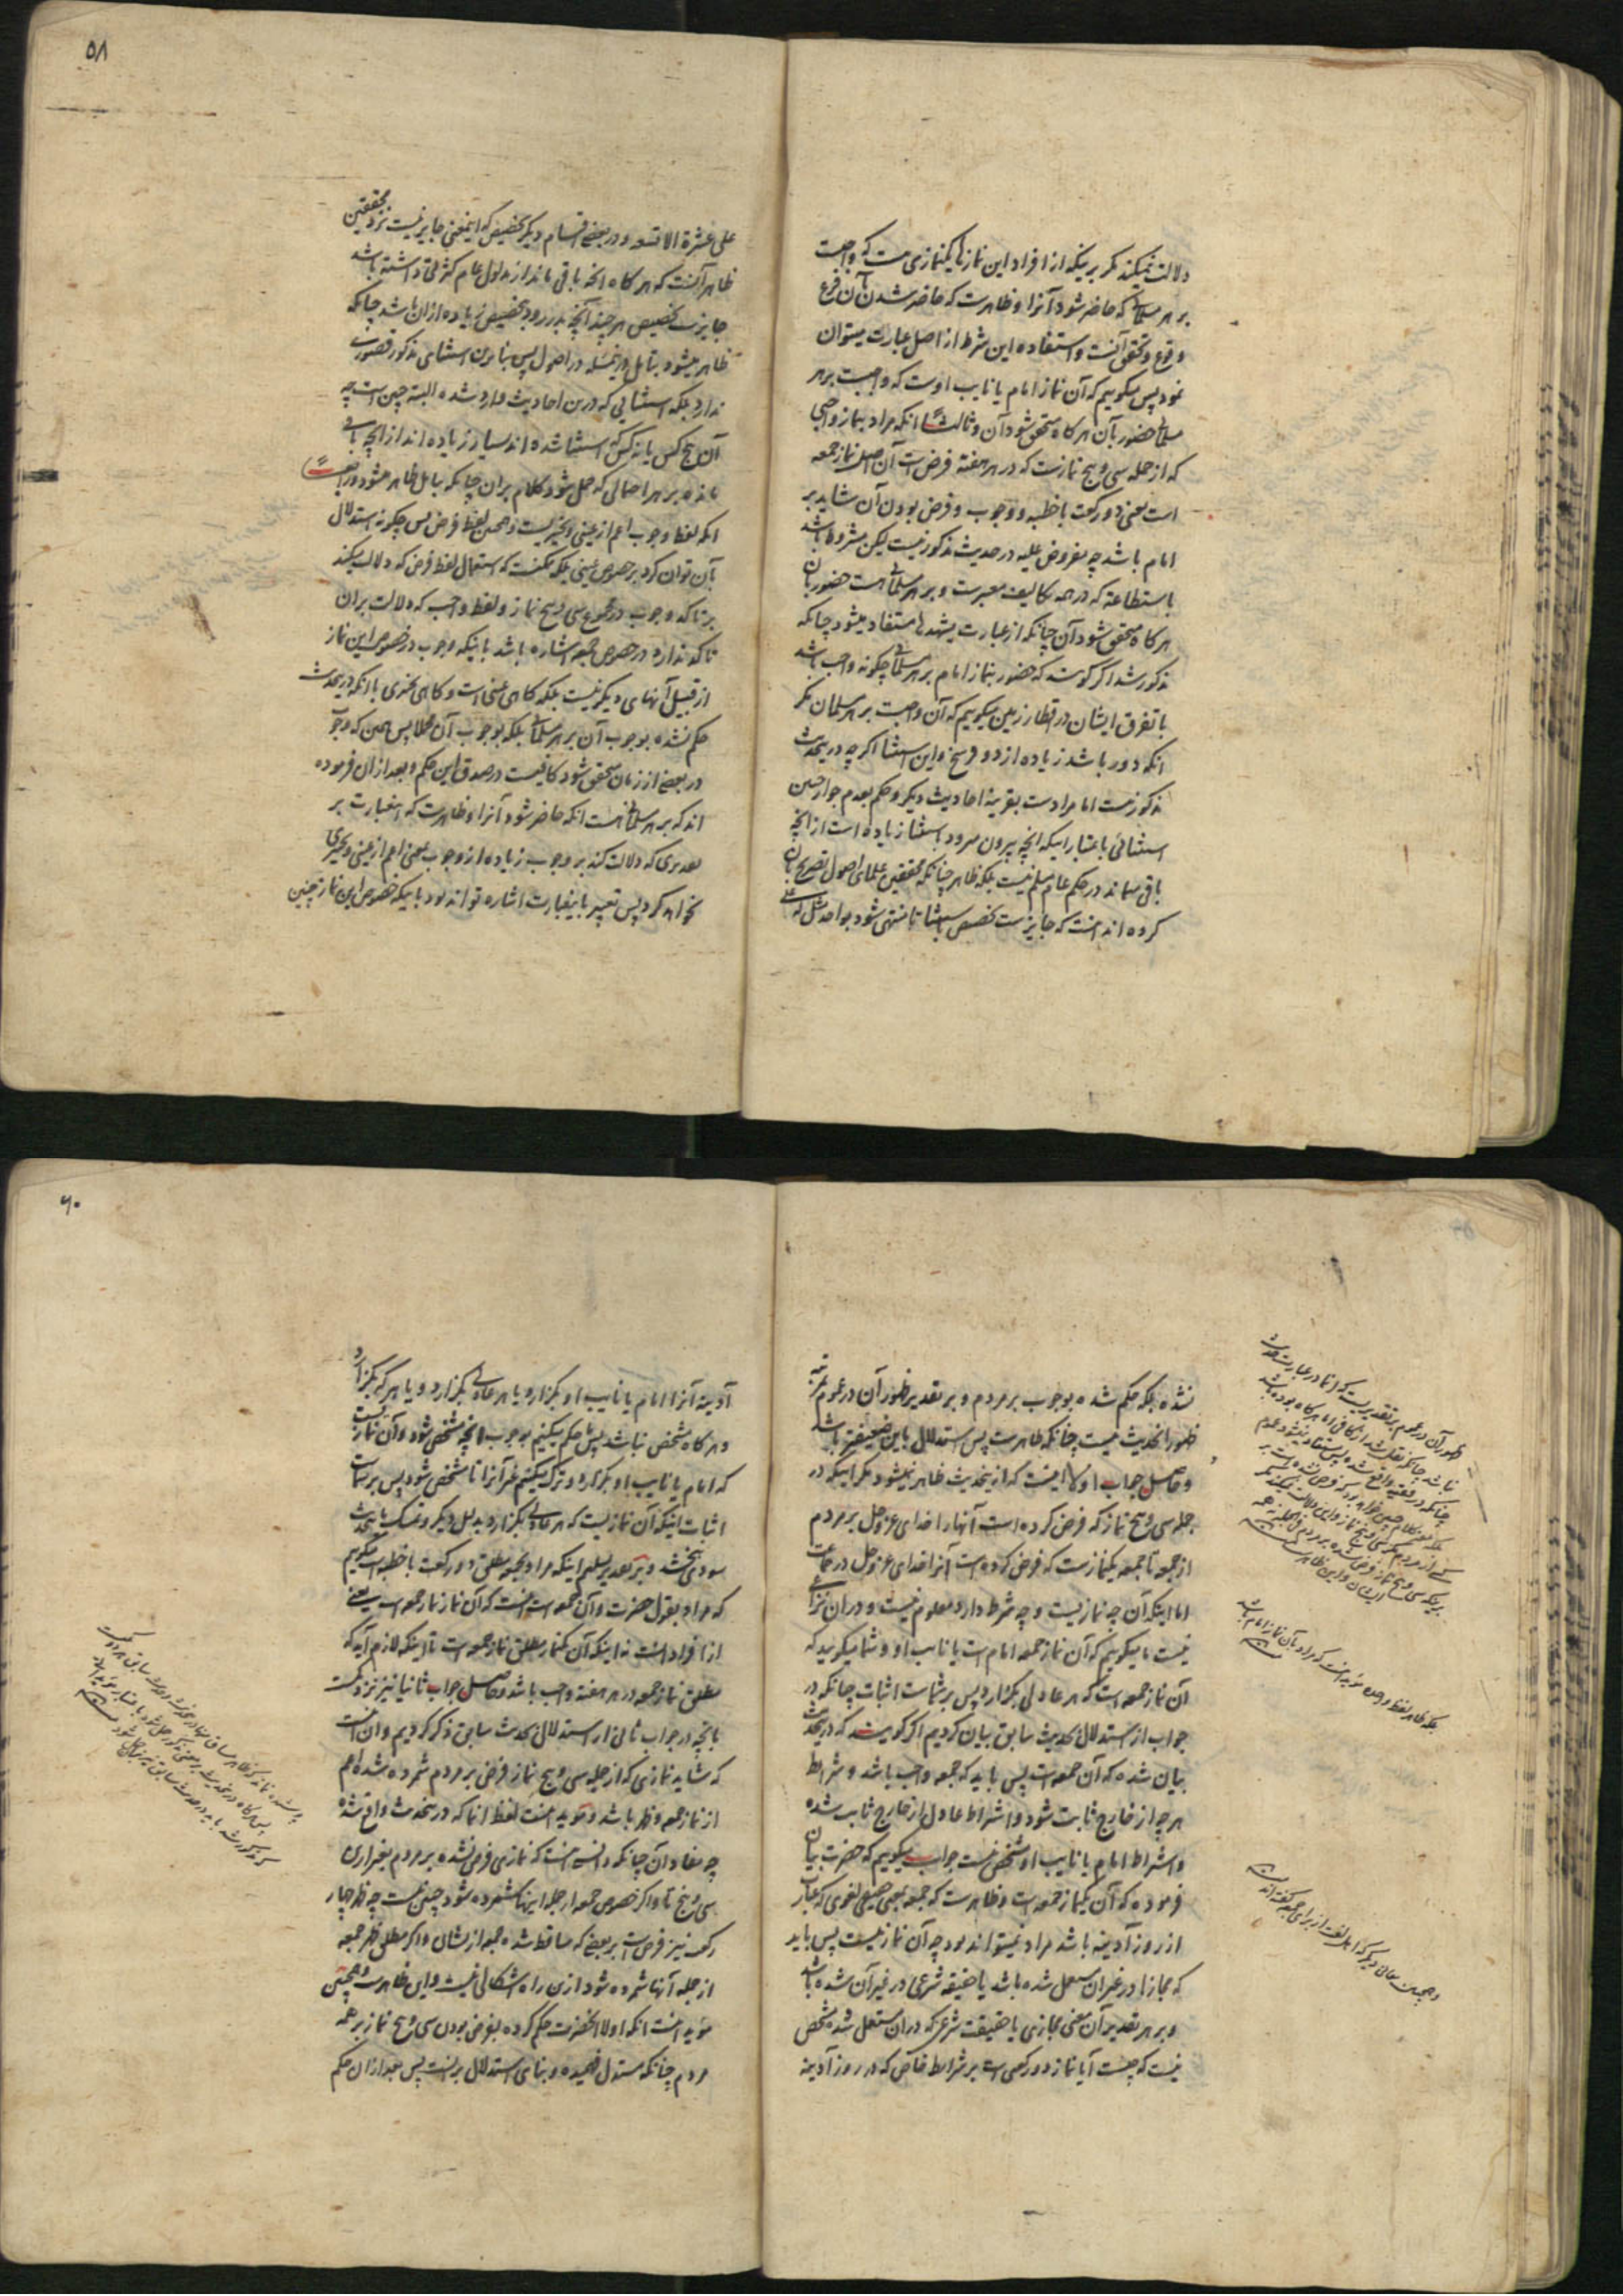 دلالت نمیکند مکر برینکه از افراد این نمازها یکنمازی هست که واجبست
بر هر مسلمانی که حاضر شود آنرا و ظاهرست که حاضر شدن بآن فرع
وقوع و تحقق آنست و استفاده این شرط از اصل عبارت میتوان
نمود پس میکوییم که آن نماز امام یا نایب اوست که واجبست بر هر
مسلمانی حضور بآن هر کاه متحقق شود آن و ثالثا انکه مراد بنماز واجبی
که از جمله سی و پنج نمازست که در هر هفته فرض است آن اصل نماز جمعه
است یعنی دو رکعت با خطبه و وجوب و فرض بودن آن شاید بر
امام باشد چه مفروض علیه در حدیث مذکور نیست لیکن مشروط باشد
باستطاعة که در همه تکالیف معتبرست و بر هر مسلمانی هست حضور بآن
هر کاه متحقق شود آن چنانکه از عبارت یشهدها مستفاد میشود چنانکه
مذکور شد اکر کویند که حضور بنماز امام بر هر مسلمانی چکونه واجب باشد
با تفرق ایشان در اقطار زمین میکوییم که آن واجبست بر هر مسلمان مکر
انکه دور باشد زیاده از دو فرسخ و این استثنا اکر چه درینحدیث
مذکور نیست اما مرادست بقرینهٔ احادیث دیکر و حکم بعدم جواز چنین
استثنائی باعتبار اینکه انچه بیرون میرود باستثنا زیاده است از انچه
باقی میماند در حکم عام مسلم نیست بلکه ظاهر چنانکه محققین علمای اصول تصریح بآن
کرده اند انست که جایزست تخصیص باستثنا تا منتهی شود بواحد مثل له علی
۵۸
علی عشرة الا تسعه و در بعضی اقسام دیکر تخصیص که اینمعنی جایز نیست نزد محققین
ظاهر آنست که هر کاه انچه باقی ماند از مدلول عام کثرتی داشته باشد
جایزست تخصیص هر چند آنچه بدر رود بتخصیص زیاده ازان باشد چنانکه
ظاهر میشود بتامل درینمسئله در اصول پس بنابرین استثنای مذکور قصوری
ندارد بلکه استثنایی که درین احادیث وارد شده البته چنین است چه
آن پنج کس یا نه کس که استثنا شده اند بسیار زیاده اند از انچه باقی
مانده بر هر احتمالی که حمل شود کلام بران چنانکه بتامل ظاهر میشود و رابعا
انکه لفظ وجوب اعم از عینی و تخییریست و همچنین لفظ فرض پس چکونه استدلال
بآن توان کرد بر خصوص عینی بلکه ممکنست که استعمال لفظ فرض که دلالت میکند
بر تاکد وجوب در مجموع سی و پنج نماز و لفظ واجب که دلالت بران
تاکد ندارد در خصوص جمعه اشاره باشد باینکه وجوب در خصوص این نماز
از قبیل آنهای دیکر نیست بلکه کاهی عینی است و کاهی تخییری با انکه درینحدیث
حکم نشده بوجوب آن بر هر مسلمانی بلکه بوجوب آن مجملا پس همین که وجوب
در بعضی از زمان متحقق شود کافیست در صدق این حکم و بعد ازان فرموده
اند که بر هر مسلمانی هست انکه حاضر شود آنرا و ظاهرست که اینعبارت بر
تقدیری که دلالت کند بر وجوب زیاده از وجوب بمعنی اعم از عینی و تخییری
نخواهد کرد پس تعبیر باینعبارت اشاره تواند بود باینکه خصوص این نماز چنین
نشده بلکه حکم شده بوجوب بر مردم و بر تقدیر ظهور آن در عموم بمرتبه
ظهور انحدیث نیست چنانکه ظاهرست پس استدلال باین ضعیفتر باشد
و حاصل جواب اولا اینست که ازینحدیث ظاهر نمیشود مکر اینکه در
جمله سی و پنج نماز که فرض کرده است آنها را خدای عز وجل بر مردم
از جمعه تا جمعه یکنمازست که فرض کرده است آنرا خدای عز وجل در جماعت
اما اینکه آن چه نمازیست و چه شرط دارد معلوم نیست و دران نزاعی
نیست ما میکوییم که آن نماز جمعه امام است یا نایب او و شما میکویید که
آن نماز جمعه است که هر عادلی بکزارد پس بر شماست اثبات چنانکه در
جواب از استدلال بحدیث سابق بیان کردیم اکر کویند که درینحدیث
بیان شده که آن جمعه است پس باید که جمعه واجب باشد و شرایط
هر چه از خارج ثابت شود و اشتراط عادل از خارج ثابت شده
و اشتراط امام یا نایب او مشخص نیست جواب میکوییم که حضرت بیان
فرموده که آن یکنماز جمعه است و ظاهرست که جمعه بمعنی حقیقی لغوی که عبارت
از روز آدینه باشد مراد نمیتواند بود چه آن نماز نیست پس باید
که مجازا در غیر ان مستعمل شده باشد یا حقیقه شرعی در غیر آن شده باشد
و بر هر تقدیر آن معنی مجازی یا حقیقت شرعی که دران مستعمل شده مشخص
نیست که چیست آیا نماز دو رکعتی است بر شرایط خاص که در روز آدینه
ظهور آن در عموم بر تقدیریست که انما در عبارت حدیث
بلکه ظاهر لفظ واحده مؤید انست که مراد بآن نماز امام باشد
۶۰
آدینه آنرا امام یا نایب او بکزارد یا هر عادلی بکزارد و یا هر که بکزارد
و هر کاه مشخص نباشد پس ما حکم میکنیم بوجوب انچه مشخص شود و آن نمازیست
که امام یا نایب او بکزارد و ترک میکنیم غیر آنرا تا مشخص شود پس بر شماست
اثبات اینکه آن نمازیست که هر عادلی بکزارد بدلیل دیکر و تمسک باینحدیث
سودی نبخشد و بر تقدیر تسلیم اینکه مراد بجمعه مطلق دو رکعت با خطبه است میکوییم
که مراد بقول حضرت و آن جمعه است انست که آن نماز نماز جمعه است یعنی
از افراد انست نه اینکه آن یکنماز مطلق نماز جمعه است تا اینکه لازم آید که
مطلق نماز جمعه در هر هفته واجب باشد و حاصل جواب ثانیا نیز نزدیکست
بانچه در جواب ثانی از استدلال بحدیث سابق ذکر کردیم و ان انست
که شاید نمازی که از جمله سی و پنج نماز فرض بر مردم شمرده شده اعم
از نماز جمعه و ظهر باشد و مؤید انست لفظ انما که درینحدیث واقع شده
چه مفاد آن چنانکه دانسته انست که نمازی فرض نشده بر مردم بغیر ازین
سی و پنج تا و اکر خصوص جمعه از جمله اینها شمرده شود چنین نیست چه ظهر چهار
رکعت نیز فرضست بر بعضی که ساقط شده جمعه از یشان و اکر مطلق ظهر جمعه
از جمله آنها شمرده شود ازین راه اشکالی نیست و این ظاهرست و همچنین
مؤید انست انکه اولا انحضرت حکم کرده بفرض بودن سی و پنج نماز بر همه
مردم چنانکه مستدل فهمیده و بنای استدلال برینست پس بعد ازان حکم